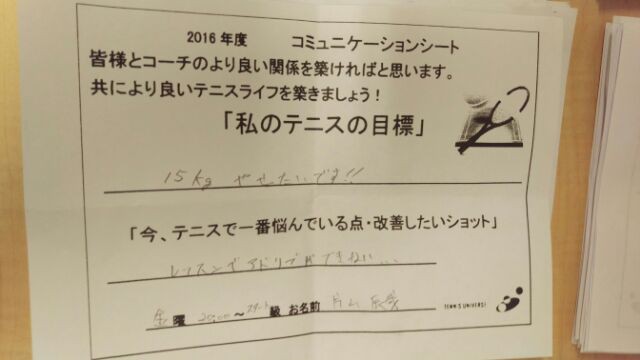 2016年度 コミュニケーションシート
皆様とコーチのより良い関係を築ければと思います。
共により良いテニスライフを築きましょう！
「私のテニスの目標」
15kg やせたいです!!
「今、テニスで一番悩んでいる点・改善したいショット」
レッスンでアドリブができない...
金曜 20:00〜スタート級 お名前 片山
TENNIS UNIVERSE